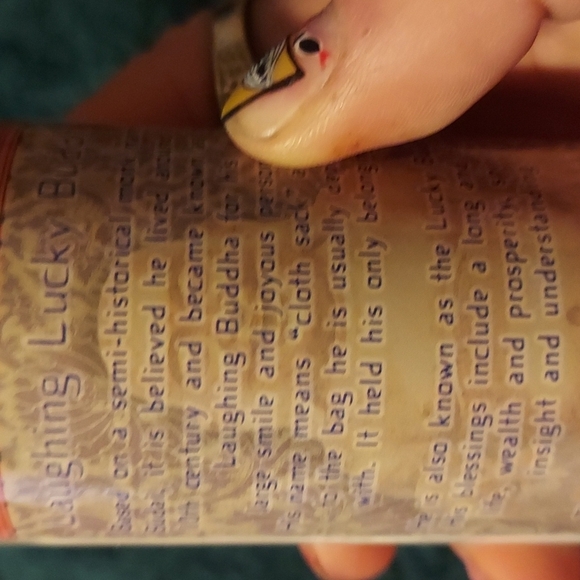 Laughing Lucky Budd
Based on a semi-historical monk
Budai, it is believed he lived around
10th century and became known
Laughing Buddha for his
large smile and joyous perso
His name means "cloth sack"
to the bag he is usually
with. It held his only belong
He is also known as the Lucky
His blessings include a long
life, wealth and prosperity,
insight and understand